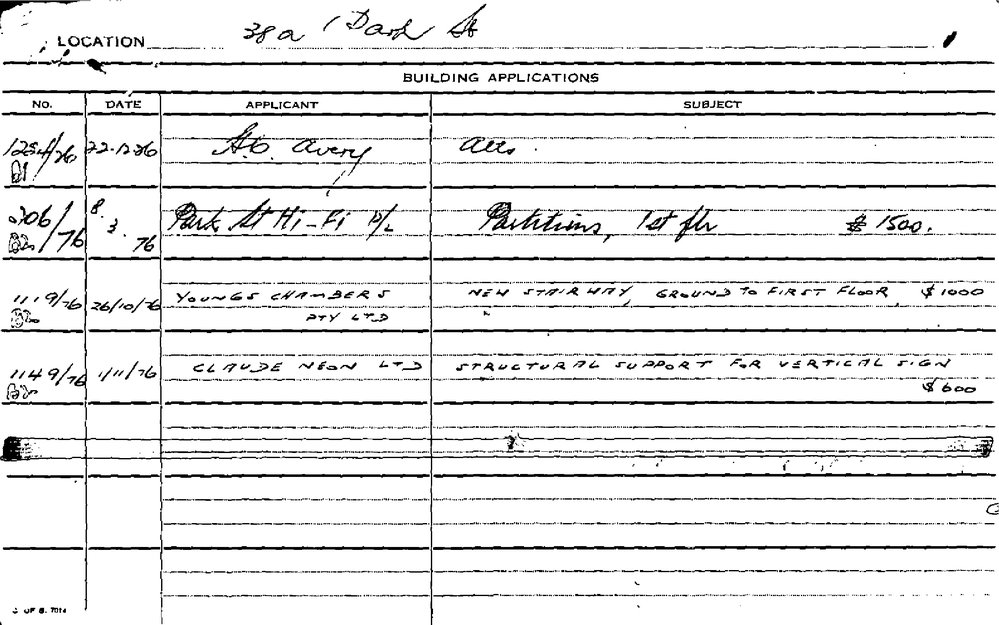 LOCATION 38a Park St
BUILDING APPLICATIONS
NO. DATE APPLICANT SUBJECT
Avery Alts.
306/76 8.3.76 Park St Hi-Fi P/L Partitions, 1st flr $1500.
1119/76 26/10/76 YOUNGS CHAMBERS NEW STAIRWAY, GROUND TO FIRST FLOOR, $1000
PTY LTD
1149/76 1/11/76 CLAUDE NEON LTD STRUCTURAL SUPPORT FOR VERTICAL SIGN
$600